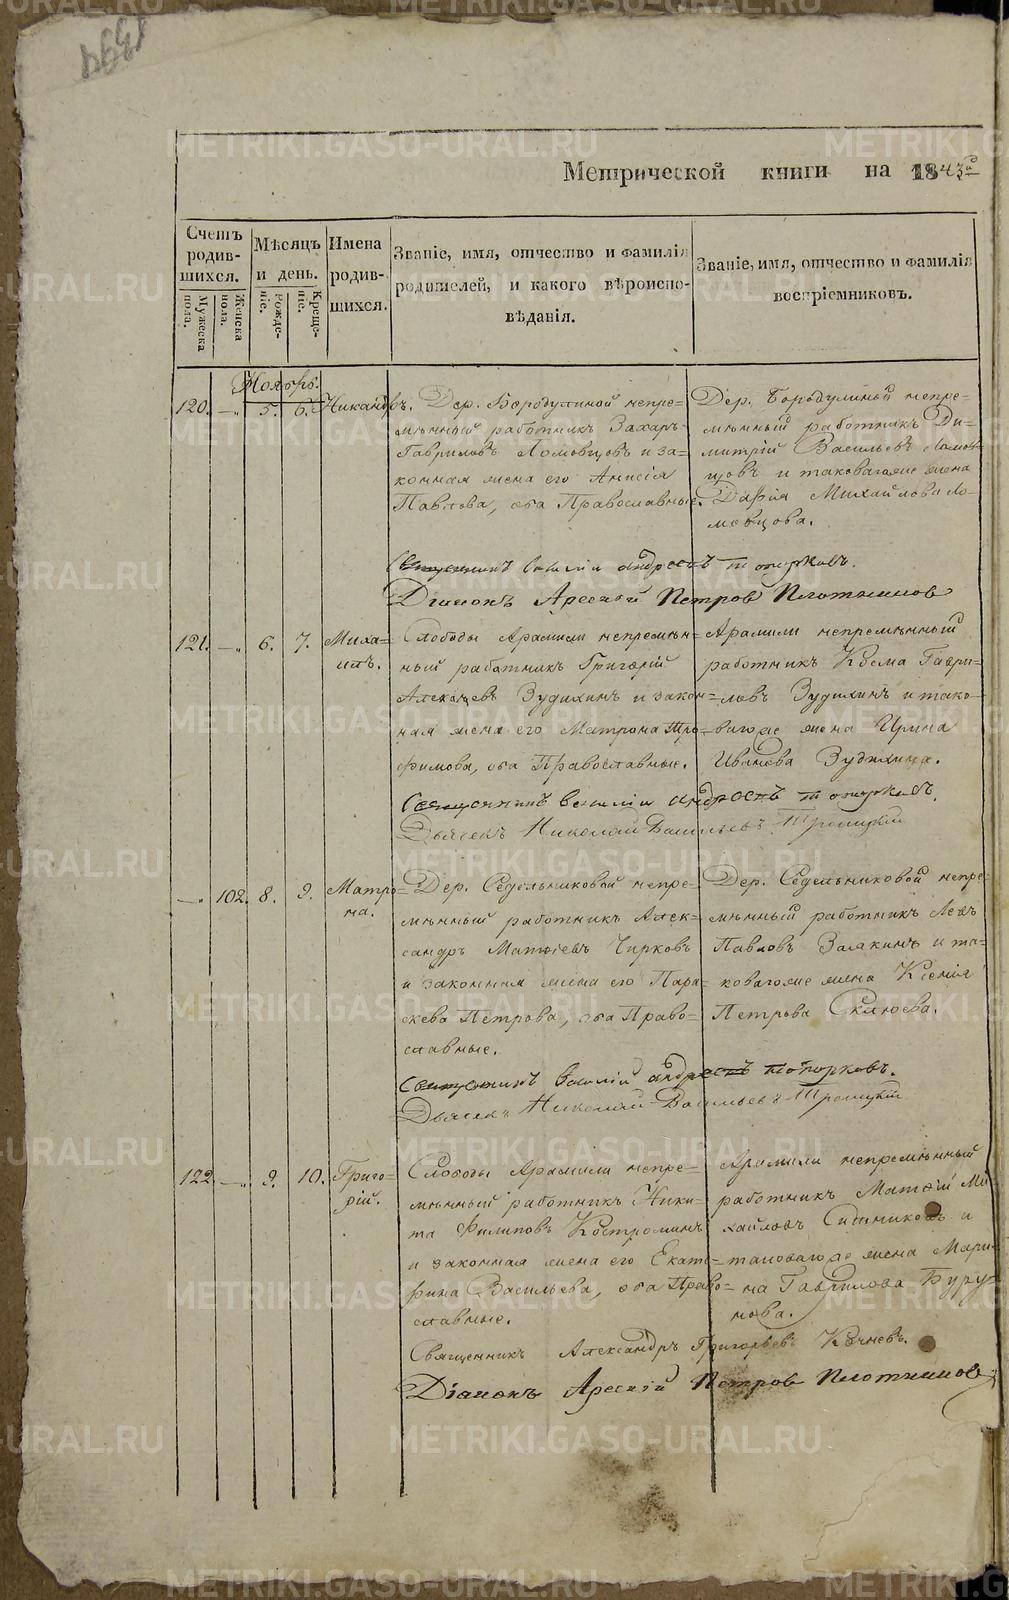 Метрической книги на 1843й
Счетъ родив-шихся.
Мужеска пола.
Женска пола.
Мѣсяцъ и день.
Рожде-ніе.
Креще-ніе.
Имена родив-шихся.
Званіе, имя, отчество и фамилія
родителей, и какого вѣроиспо-
вѣданія.
Званіе, имя, отчество и фамилія
воспріемниковъ.
Ноябрь.
120. — 5. 6. Никандръ.
Дер. Бородулиной непре-
мѣнный работникъ Захаръ
Гавриловъ Ломовцовъ и за-
конная жена его Анисія
Павлова, оба Православные.
Дер. Бородулиной непре-
мѣнный работникъ Ди-
митрій Васильевъ Ломов-
цовъ и таковагоже жена
Дарія Михайлова Ло-
мовцова.
Священникъ Василій Андреевъ Топорковъ.
Діаконъ Арсеній Петровъ Плотниковъ
121. — 6. 7. Миха-
илъ.
Слободы Арамили непремѣн-
ный работникъ Григорій
Алексѣевъ Зудихинъ и закон-
ная жена его Матрона Тро-
фимова, оба Православные.
Арамили непремѣнный
работникъ Косма Гаври-
ловъ Зудихинъ и тако-
вагоже жена Ирина
Иванова Зудихина.
Священникъ Василій Андреевъ Топорковъ.
Дьячекъ Николай Васильевъ Троицкій
— 102. 8. 9. Матро-
на.
Дер. Седельниковой непре-
мѣнный работникъ Алек-
сандръ Матвіевъ Чирковъ
и законная жена его Пара-
скева Петрова, оба Право-
славные.
Дер. Седельниковой непре-
мѣнный работникъ Левъ
Павловъ Заякинъ и та-
ковагоже жена Ксенія
Петрова Склюева.
Священникъ Василій Андреевъ Топорковъ.
Дьячекъ Николай Васильевъ Троицкій
122. — 9. 10. Григо-
рій.
Слободы Арамили непре-
мѣнный работникъ Ники-
та Филиповъ Костроминъ
и законная жена его Екате-
рина Васильева, оба Право-
славные.
Арамили непремѣнный
работникъ Матвій Ми-
хайловъ Ситниковъ и
таковагоже жена Мари-
на Гаврилова Буру-
нова.
Священникъ Александръ Григорьевъ Кочневъ.
Діаконъ Арсеній Петровъ Плотниковъ
METRIKI.GASO-URAL.RU